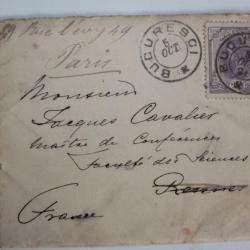 Rue Lévy 49
Paris
BUCURESCI
5
OCT
Monsieur
Jacques Cavalier
Maître de Conférences
Faculté des Sciences
Rennes
France